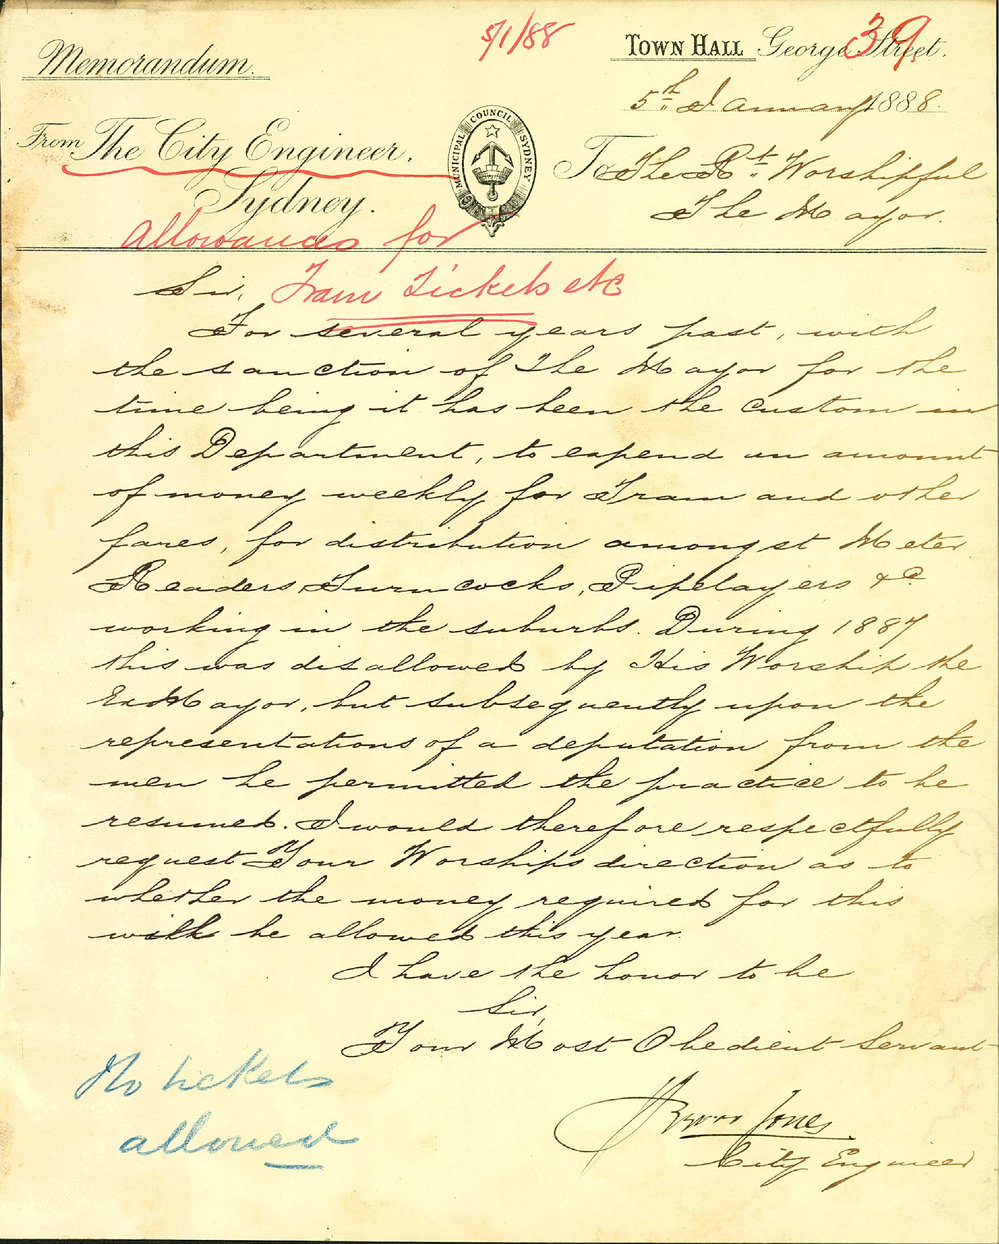 5/1/88
39
Memorandum.
TOWN HALL George Street.
5th January 1888.
From The City Engineer,
Sydney.
MUNICIPAL COUNCIL SYDNEY
To The Rt. Worshipful
The Mayor.
Allowances for
Tram Tickets etc
Sir,
For several years past, with
the sanction of The Mayor for the
time being it has been the custom in
this Department, to expend an amount
of money weekly for Tram and other
fares, for distribution amongst Meter
Readers, Turncocks, Pipelayers &c
working in the suburbs. During 1887
this was disallowed by His Worship the
Ex Mayor, but subsequently upon the
representations of a deputation from the
men he permitted the practice to be
resumed. I would therefore respectfully
request Your Worships direction as to
whether the money required for this
will be allowed this year.
I have the honor to be
Sir,
Your Most Obedient Servant
Jones.
City Engineer
No tickets
allowed